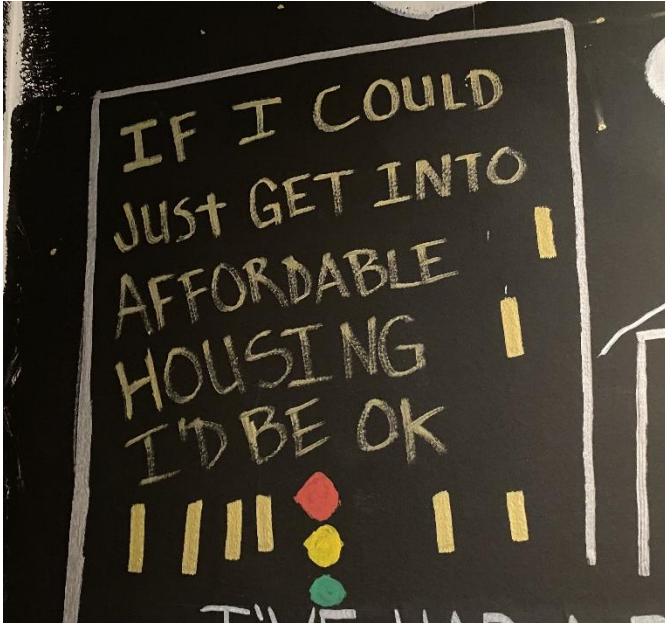 IF I COULD
JUSt GET INTO
AFFORDABLE
HOUSING
I'D BE OK
I'VE HAD A